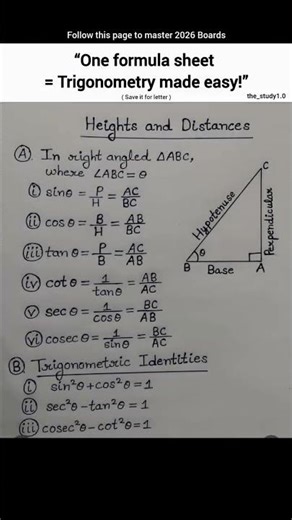 Follow this page to master 2026 Boards
“One formula sheet
= Trigonometry made easy!”
( Save it for letter )
the_study1.0
Heights and Distances
Ⓐ. In right angled ΔABC,
where ∠ABC = θ
(i) sinθ = P/H = AC/BC
(ii) cosθ = B/H = AB/BC
(iii) tanθ = P/B = AC/AB
(iv) cotθ = 1/tanθ = AB/AC
(v) secθ = 1/cosθ = BC/AB
(vi) cosecθ = 1/sinθ = BC/AC
C
Hypotenuse
Perpendicular
θ
B
Base
A
Ⓑ. Trigonometric Identities
(i) sin²θ + cos²θ = 1
(ii) sec²θ − tan²θ = 1
(iii) cosec²θ − cot²θ = 1